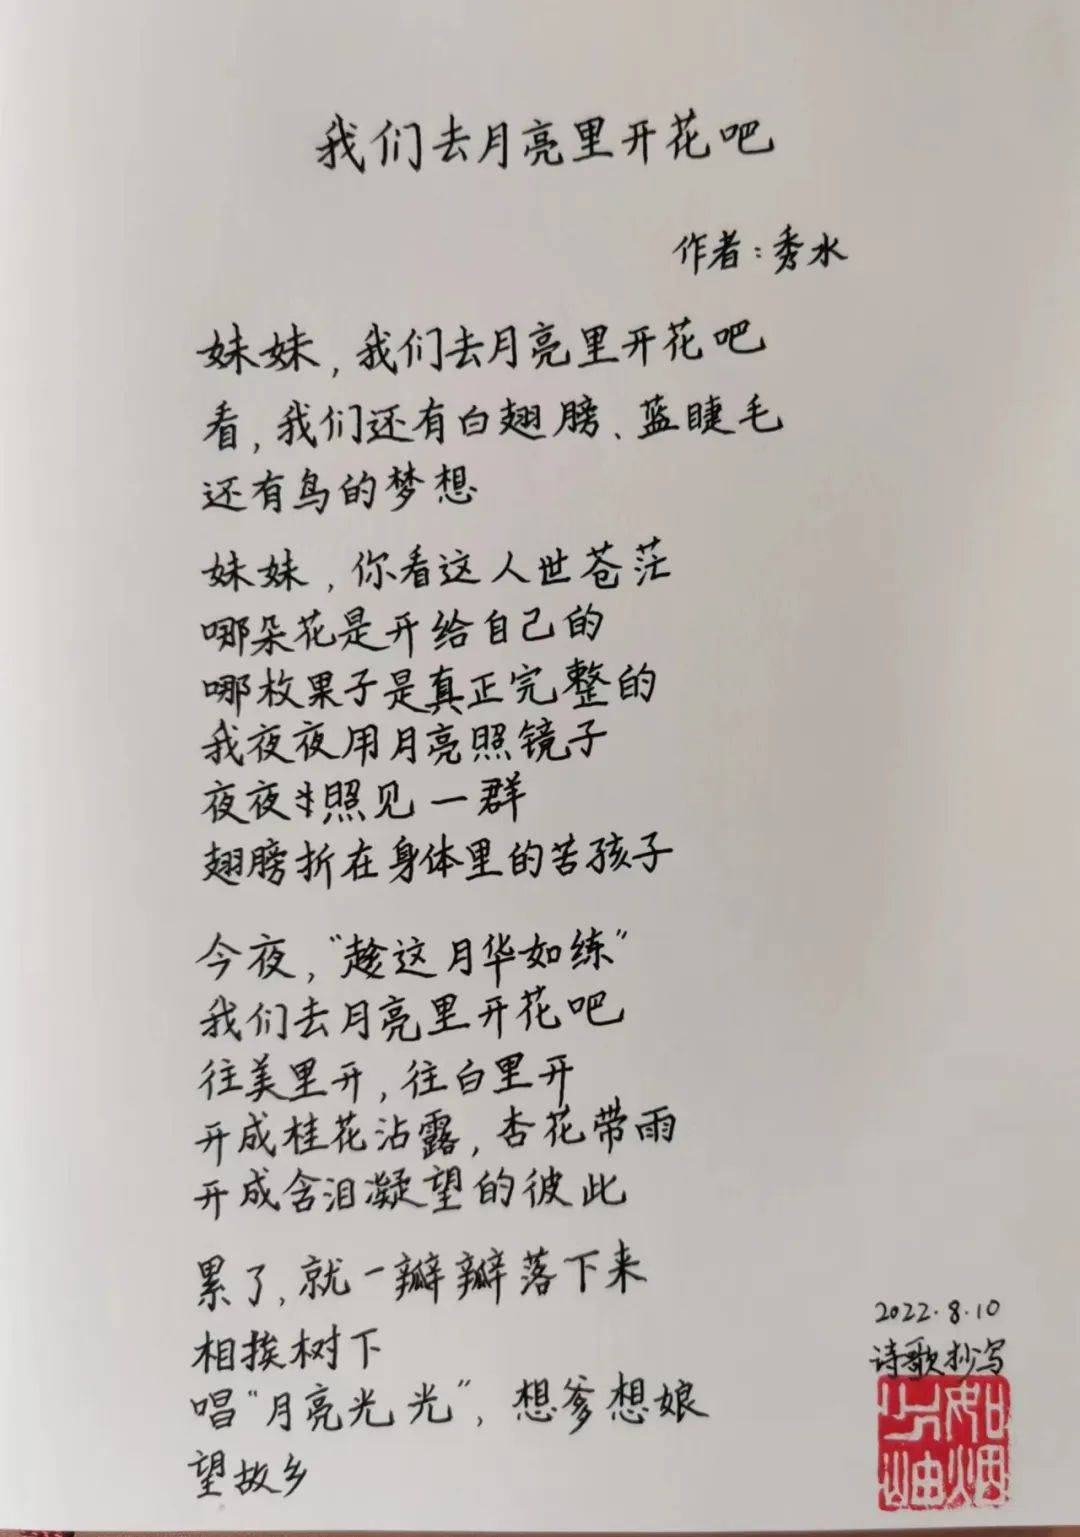 我们去月亮里开花吧
作者：秀水
妹妹，我们去月亮里开花吧
看，我们还有白翅膀、蓝睫毛
还有鸟的梦想
妹妹，你看这人世苍茫
哪朵花是开给自己的
哪枚果子是真正完整的
我夜夜用月亮照镜子
夜夜照见一群
翅膀折在身体里的苦孩子
今夜，“趁这月华如练”
我们去月亮里开花吧
往美里开，往白里开
开成桂花沾露，杏花带雨
开成含泪凝望的彼此
累了，就一瓣瓣落下来
相挨树下
唱“月亮光光”，想爹想娘
望故乡
2022.8.10
诗歌抄写